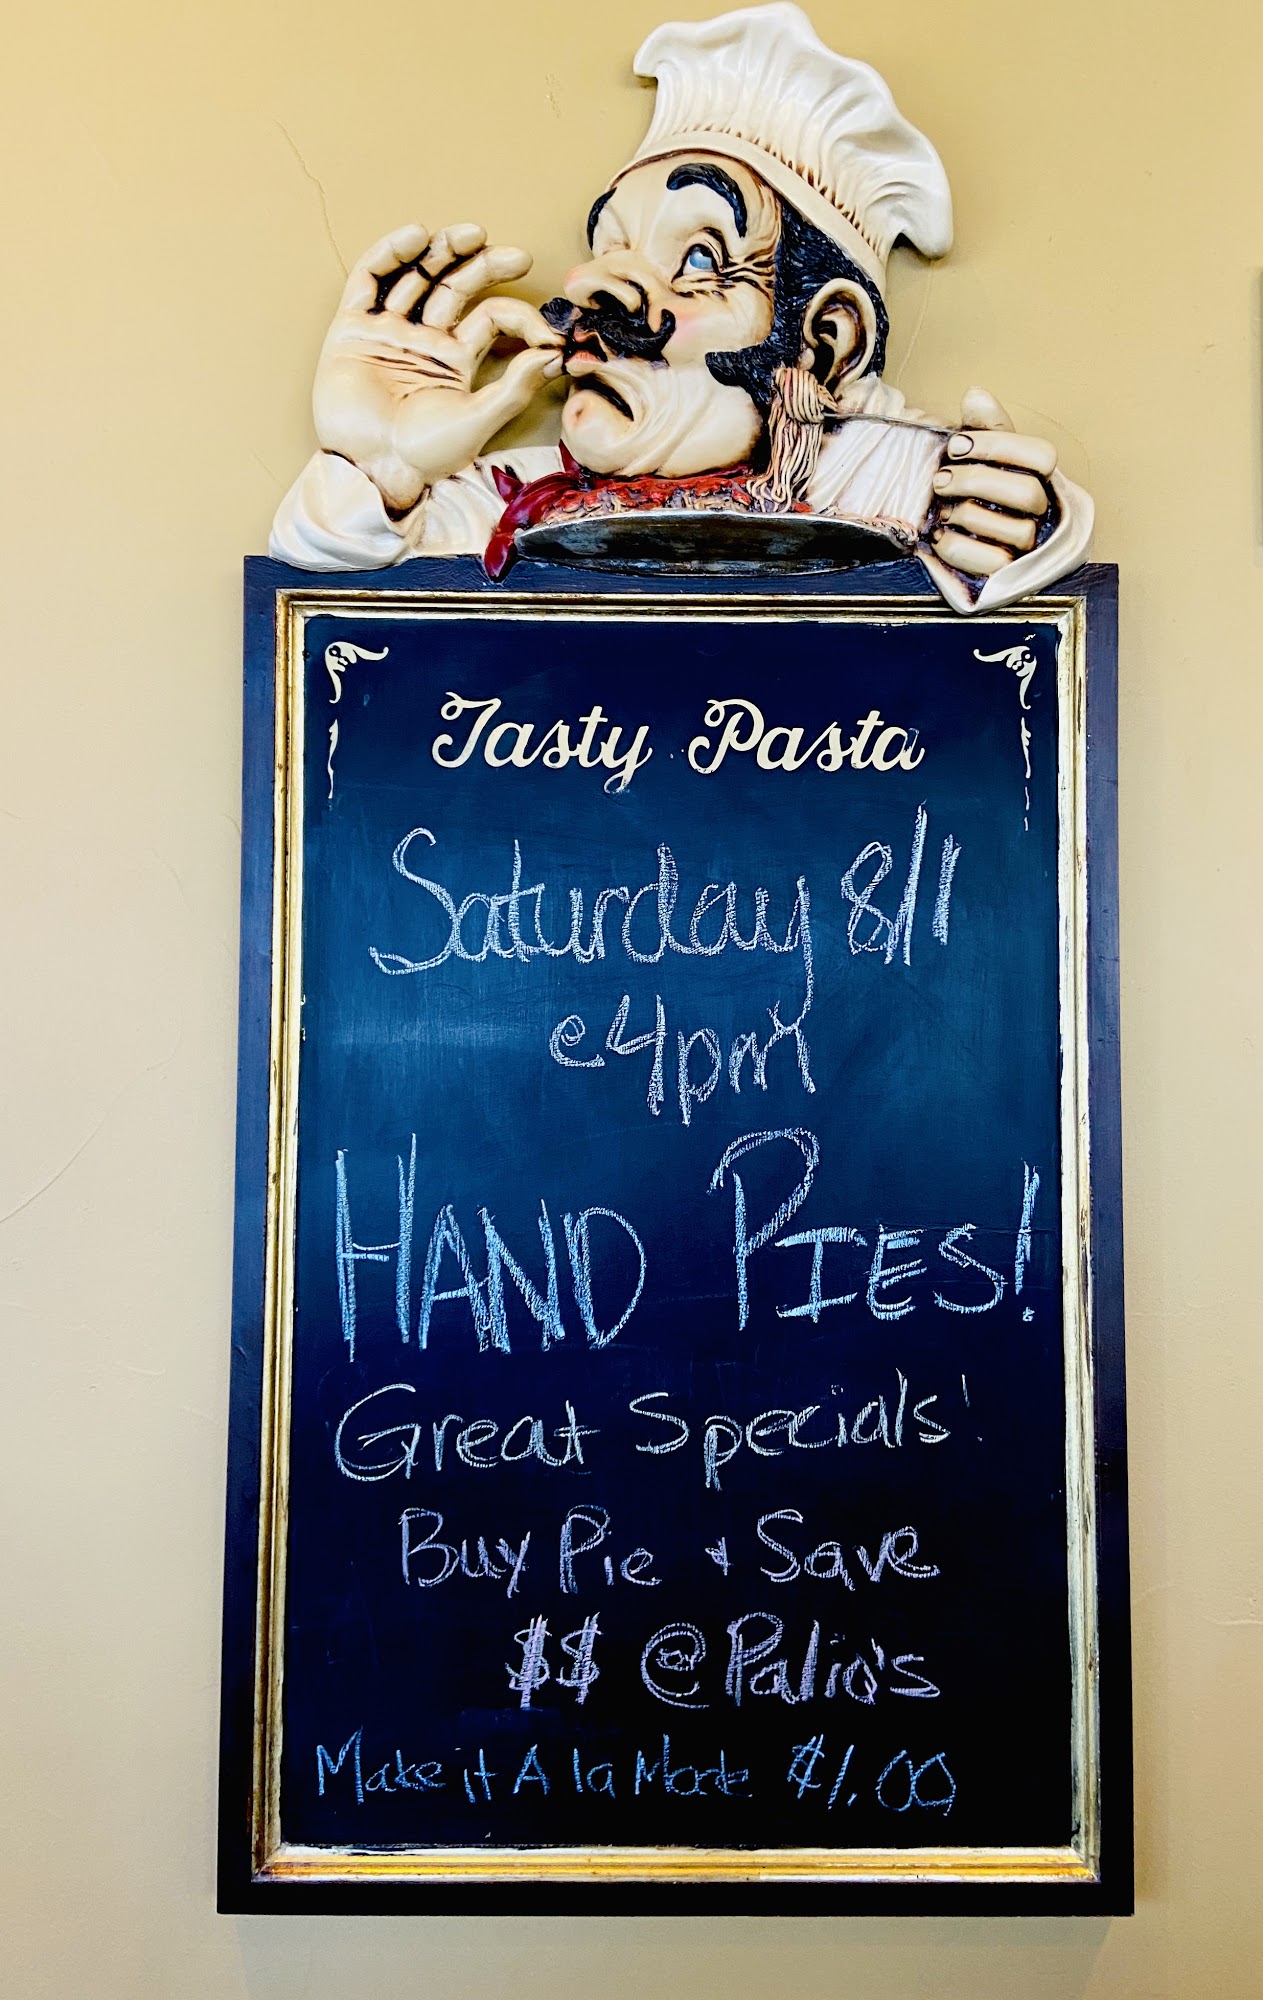 Tasty Pasta
Saturday 8/1
@ 4pm
HAND PIES!
Great Specials!
Buy Pie + Save
$$ @ Palio's
Make it A la Mode $1.00